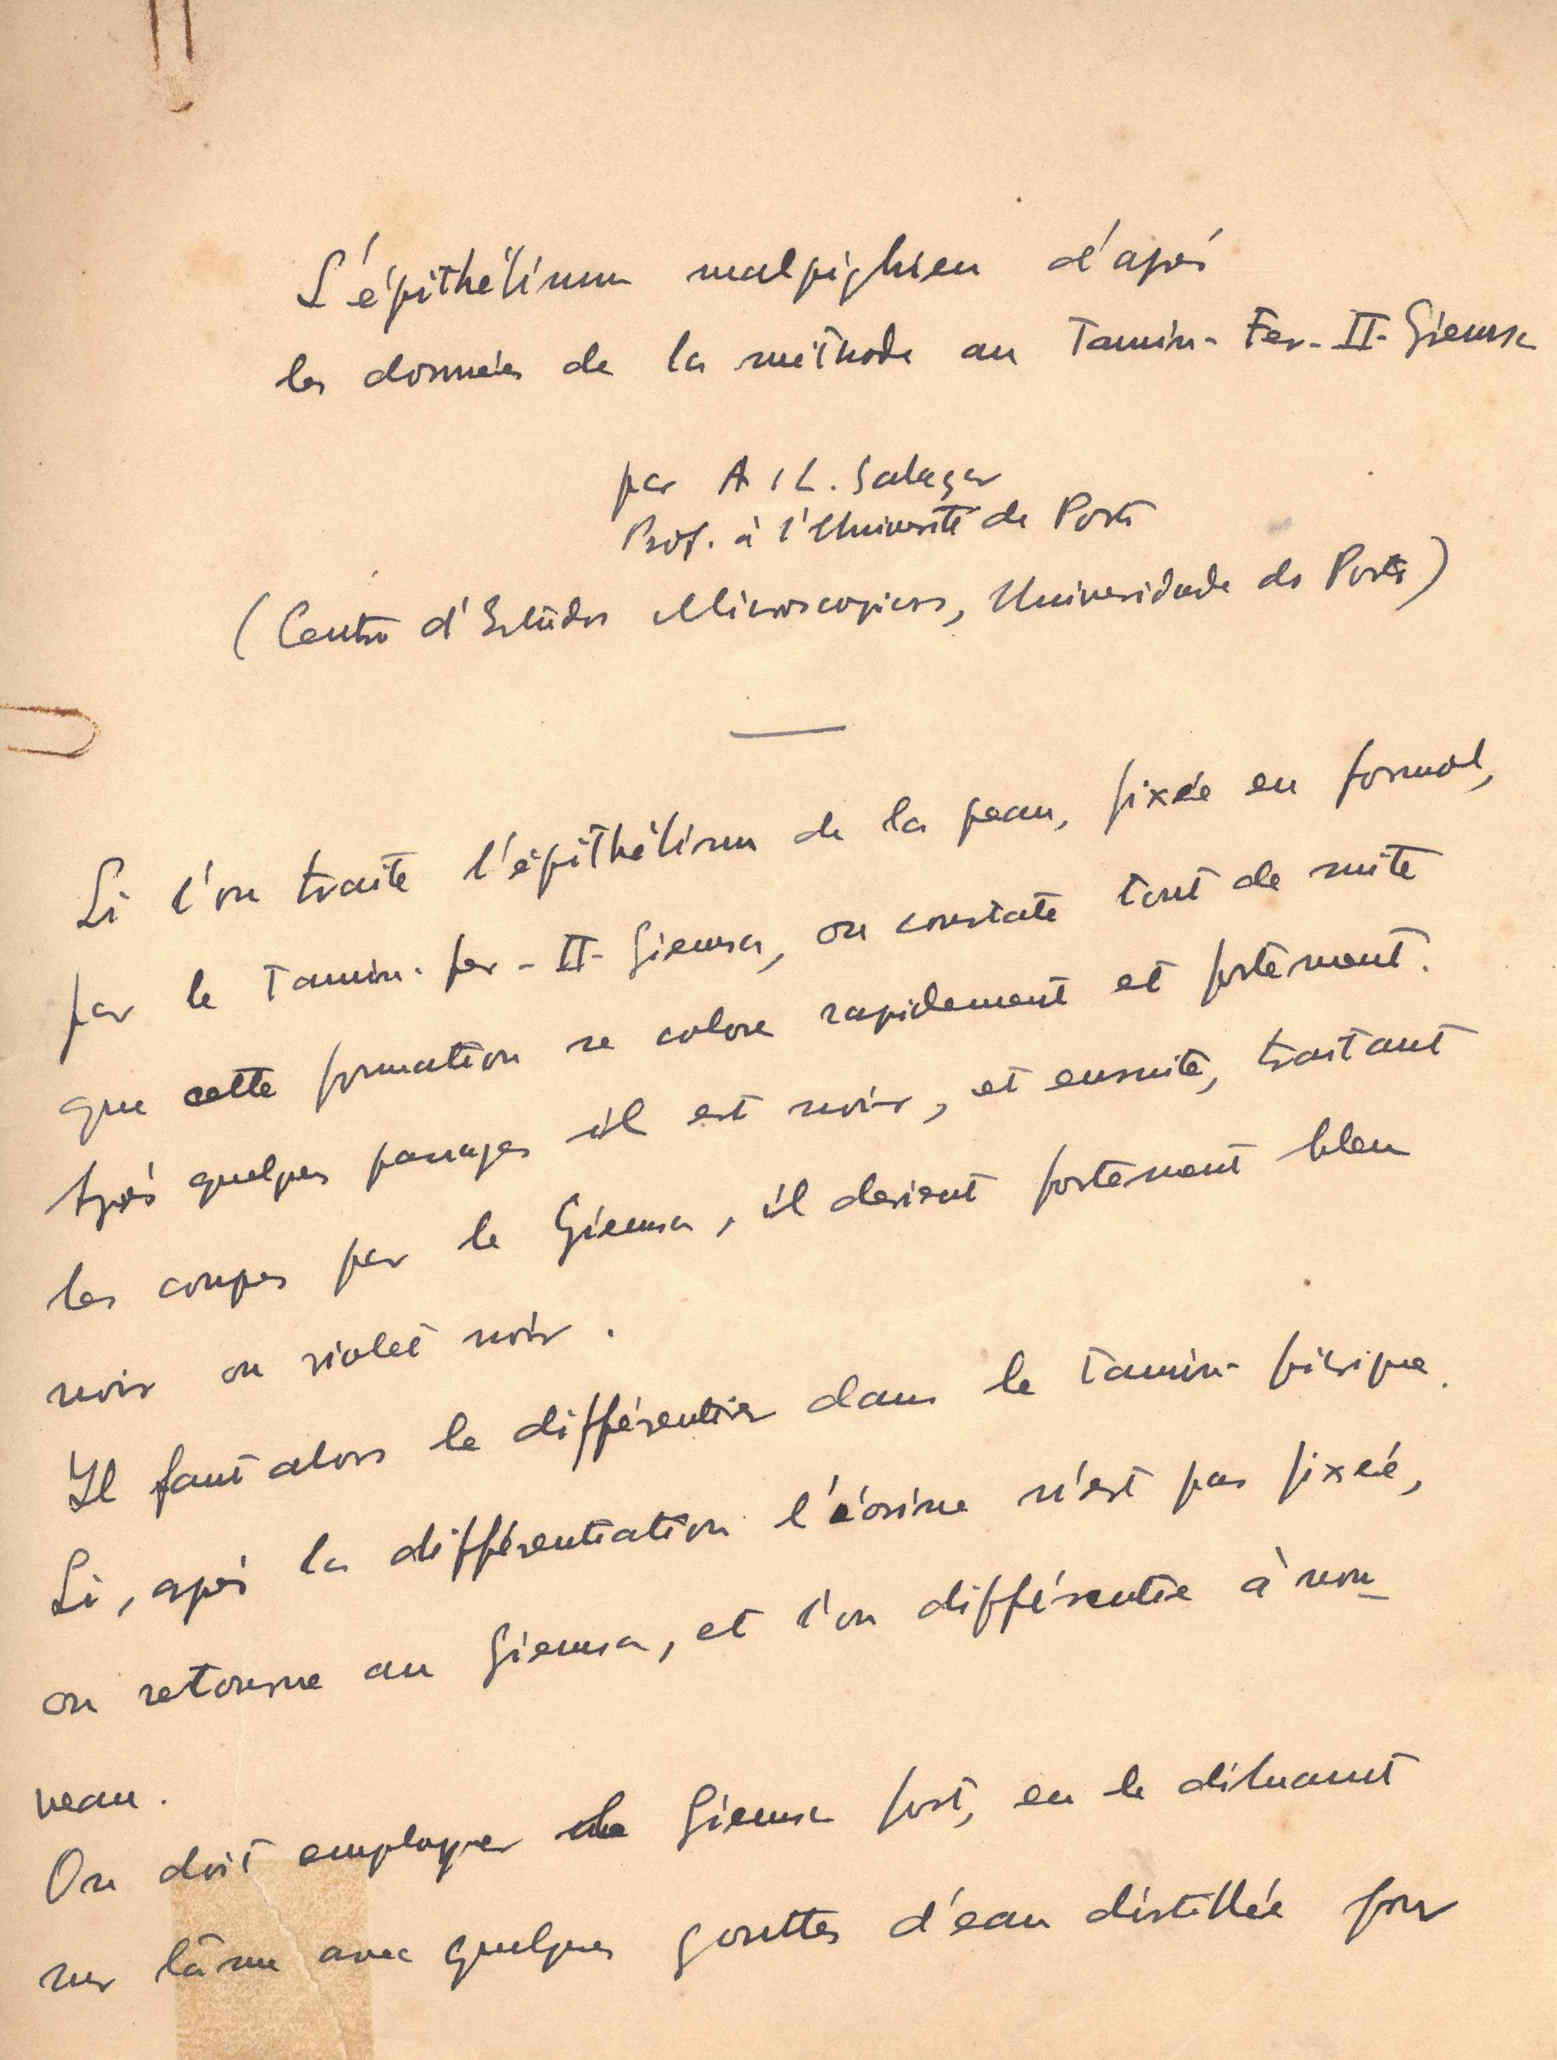 L'épithélium malpighien d'après
les données de la méthode au Tannin-Fer-II-Giemsa
par A. L. Salazar
Prof. à l'Université de Porto
(Centro d'Estudos Microscopicos, Universidade do Porto)
Si l'on traite l'épithélium de la peau, fixée en formol,
par le Tannin-fer-II-Giemsa, on constate tout de suite
que cette formation se colore rapidement et fortement.
Après quelques passages il est noir, et ensuite, traitant
les coupes par le Giemsa, il devient fortement bleu
noir ou violet noir.
Il faut alors le différentier dans le Tannin-picrique.
Si, après la différentiation l'éosine n'est pas fixée,
on retourne au Giemsa, et l'on différentie à nou-
veau.
On doit employer le Giemsa fort, en le diluant
sur lâme avec quelques gouttes d'eau distillée pour